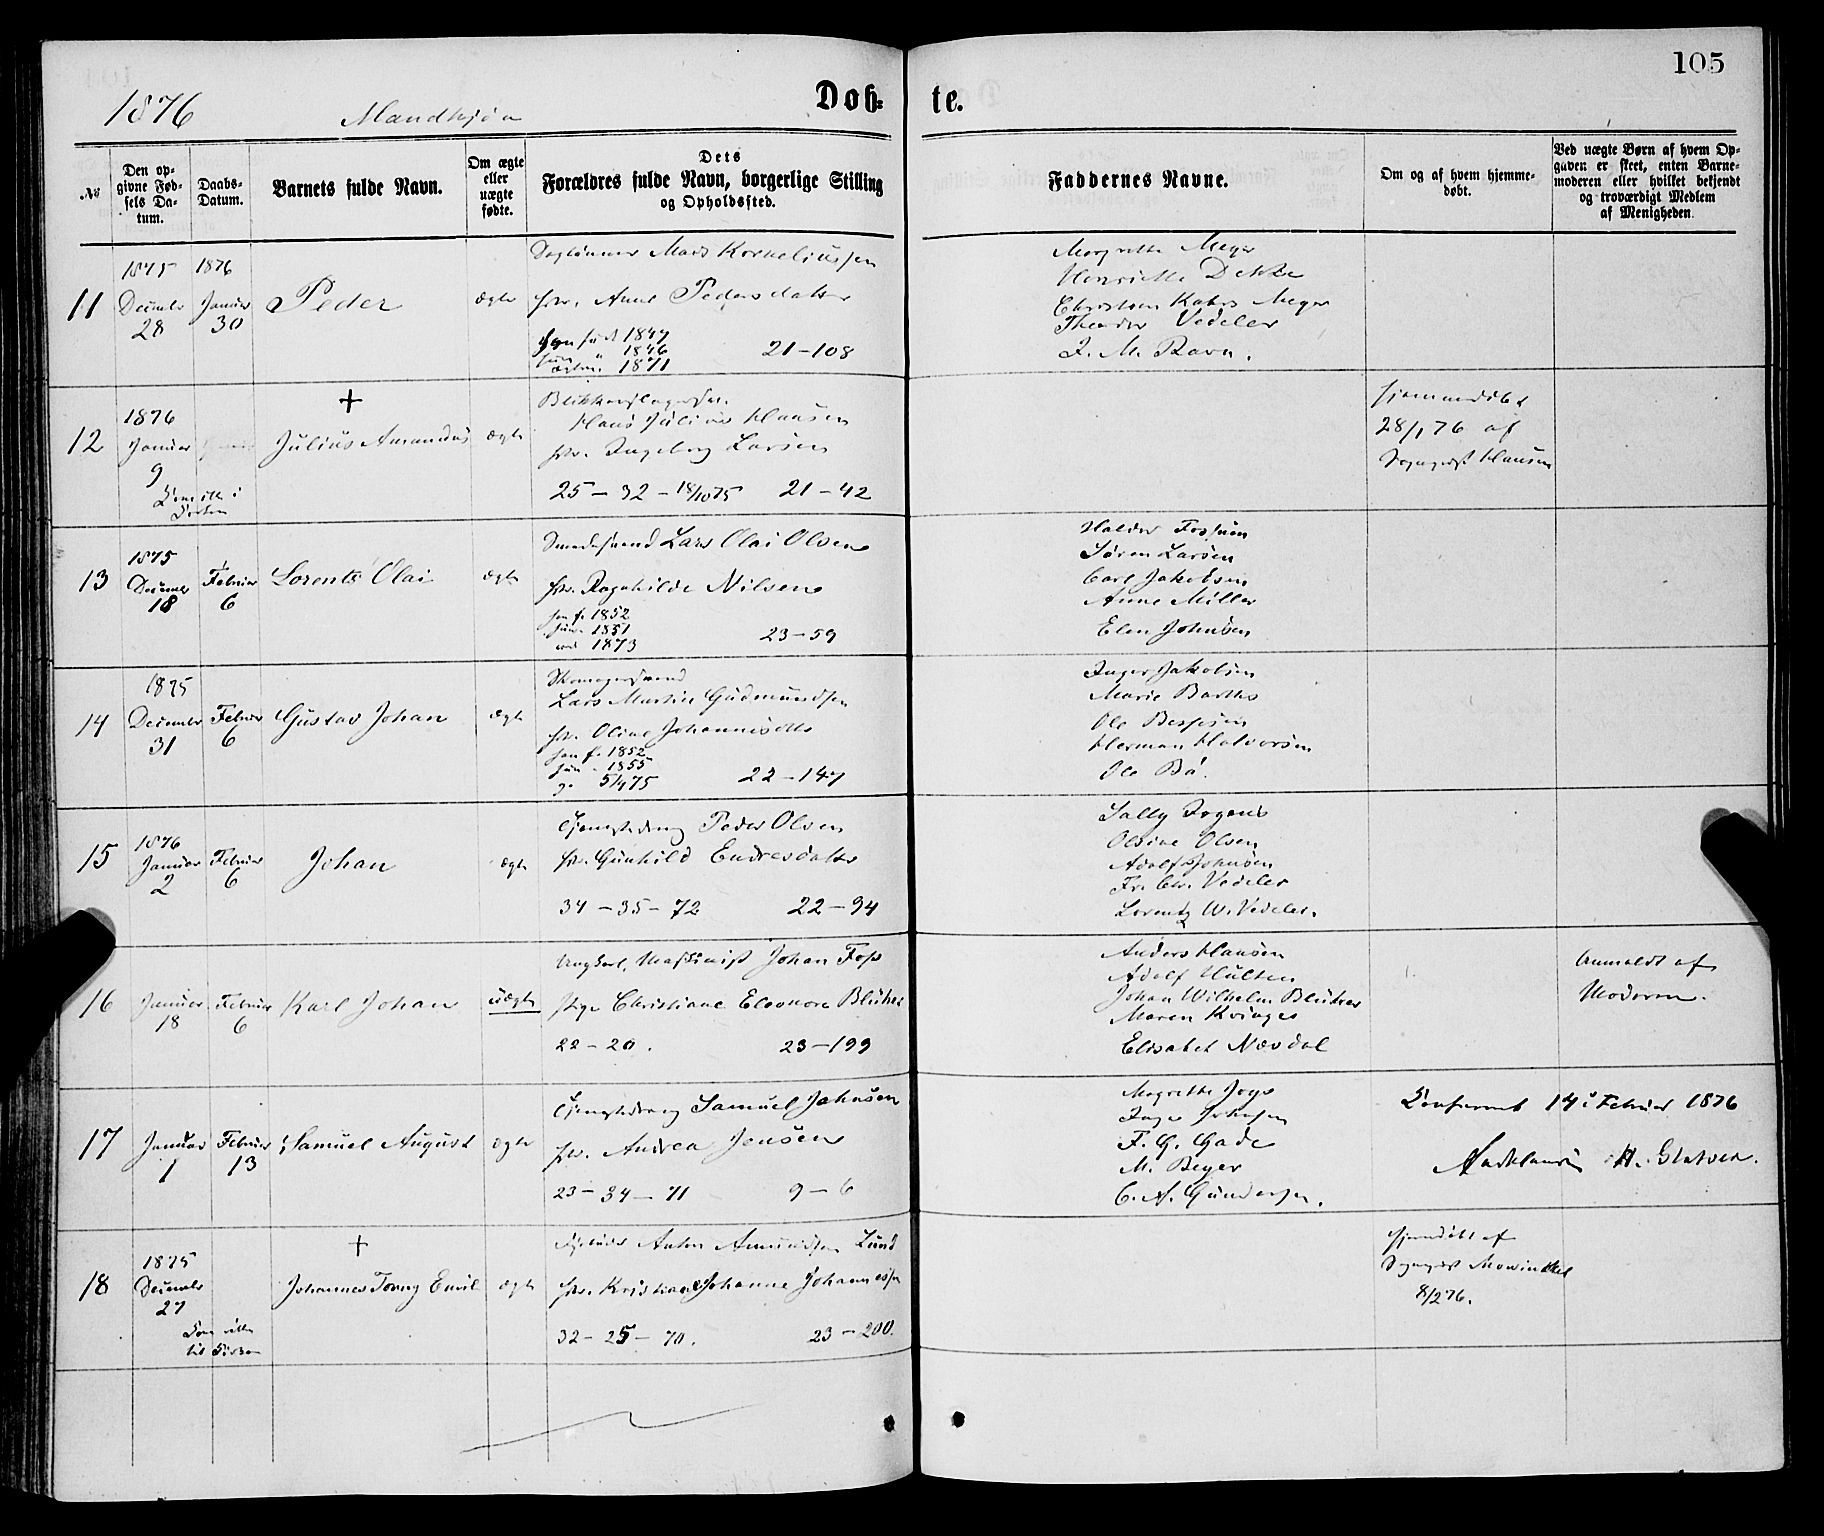 105
1876
Mandkjøn
Døb=
te.
№
Den op-
givne Fød-
sels Da-
tum.
Daabs-
Datum.
Barnets fulde Navn.
Om ægte
eller
uægte
fødte.
Dets
Forældres fulde Navn, borgerlige Stilling
og Opholdssted.
Faddernes Navne.
Om og af hvem hjemme-
døbt.
Ved uægte Børn af hvem Op-
gaven er skeet, enten Barne-
moderen eller hvilket bekjendt
og troværdigt Medlem
af Menigheden.
11
1875
December
28
1876
Januar
30
Peder
ægte
Daglønner Mads Korneliussen
Anne Pedersdatter
født 1847
" 1846
1871
21-108
Margrethe Meyer
Henriette Dekke
Christian Kahrs Meyer
Theodor Vedeler
J. M. Ravn.
12
1876
Januar
9
✝
Julius Amandus
ægte
Blikkenslagersv.
Hans Julius Hansen
Ingeborg Larsen
25 - 32 - 18/10 75 21-42
Hjemmedøbt
28/1 76 af
Sognepr. Hansen
13
1875
December
18
Februar
6
Lorents Olai
ægte
Smedesvend Lars Olai Olsen
Ragnhilde Nilsen
f. 1852
1851
1873
23-59
Halvor Fossum
Søren Larsen
Carl Jakobsen
Anne Müller
Elen Johnsen
14
1875
December
31
Februar
6
Gustav Johan
ægte
Skomagersvend
Lars Martin Gudmundsen
Oline Johannisdtr
f. 1852
1855
75
22-147
Inger Jakobsen
Marie Barths
Ole Bessesen
Herman Halvorsen
Ole Bø.
15
1876
Januar
2
Februar
6
Johan
ægte
Peder Olsen
Gunhild Endresdatter
34-35-72 22-94
Sally Irgens
Olsine Olsen
Adolf Johnsen
Fr. Chr. Vedeler
Lorentz W. Vedeler.
16
Januar
18
Februar
6
Karl Johan
uægte
Ungkarl, Maskinist Johan Foss
Pige Christiane Eleonore Blücher
22-20. 23-199
Anders Hansen
Adolf Hulten
Johan Wilhelm Blücher
Maren Kringes
Elisabet Nævdal
Anmeldt af
Moderen.
17
Januar
1
Februar
13
Samuel August
ægte
Samuel Johnsen
Andrea Jensen
23-34-71 9-6
Magrethe Joys
Inger Johnsen
F. G. Gade
M. Beyer
C. A. Gundersen.
Konfereret 14de Februar 1876
18
1875
December
27
✝
Johannes Tonny Emil
ægte
Anton Amundsen Lund
Kristiane Johanne Johannessen
32-25-70. 23-200.
Hjemdøbt af
Sognepr. Mowinckel
8/2 76.